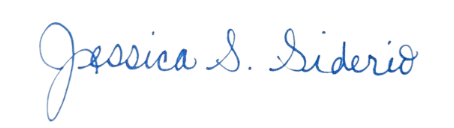 Jessica S. Siderio